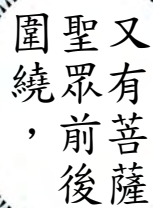 又有菩薩
聖眾前後
圍繞，